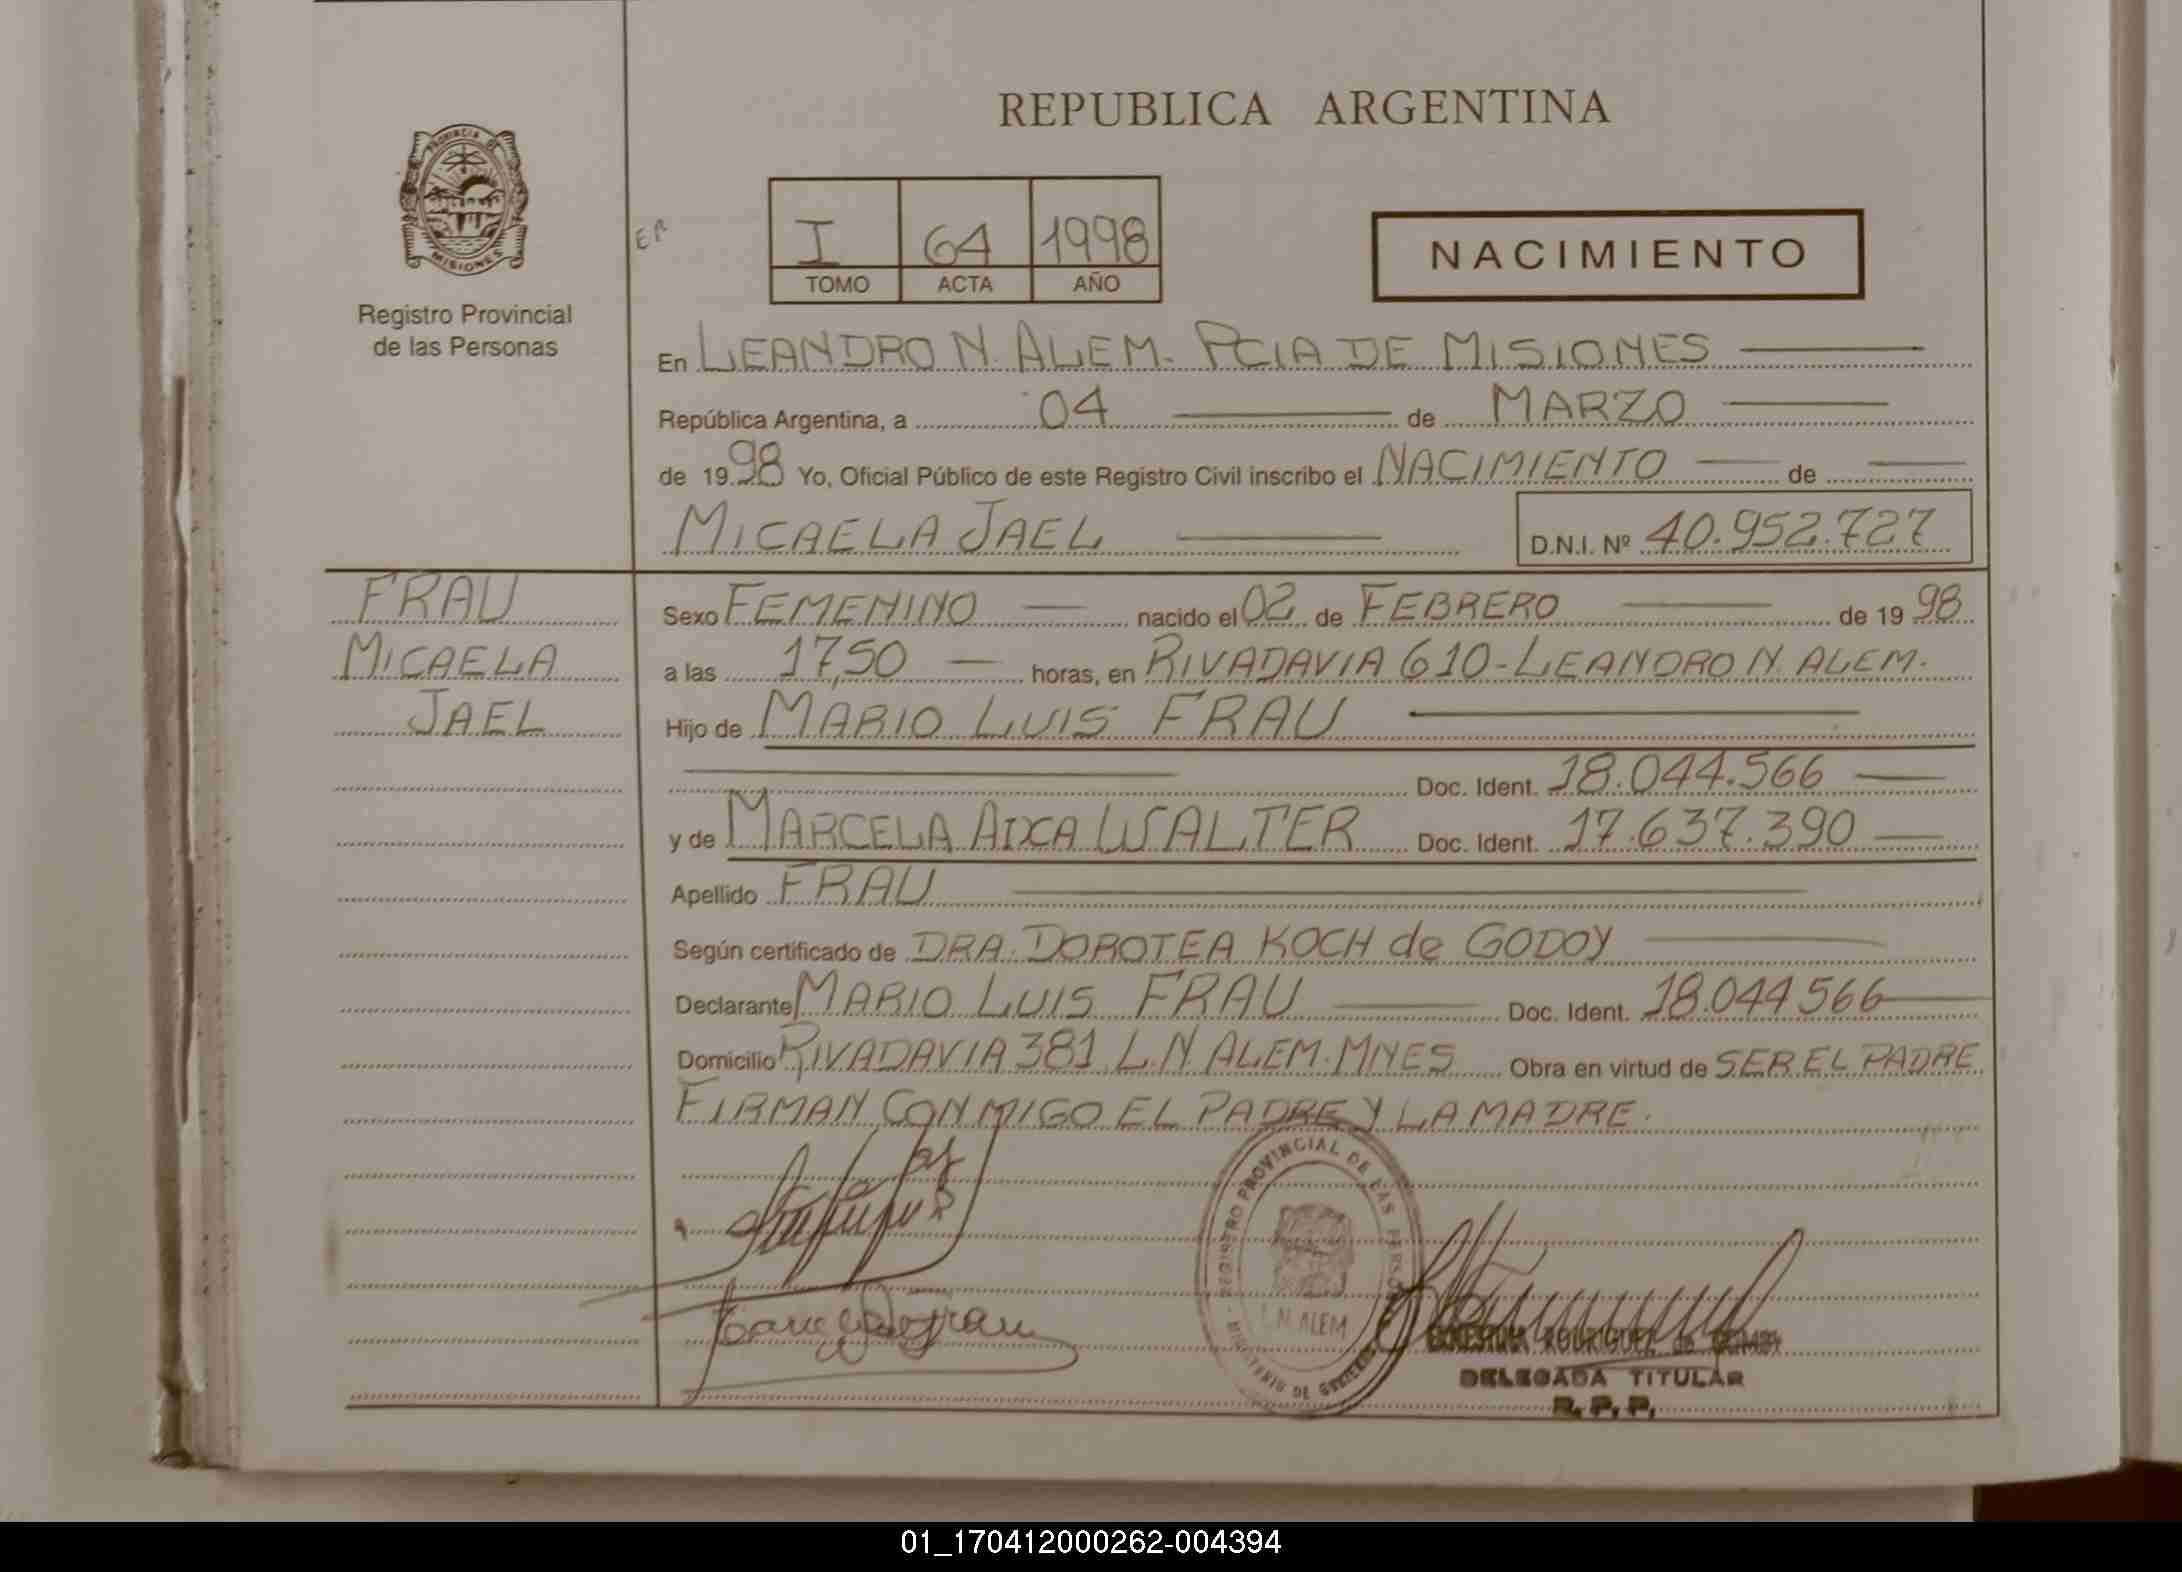 REPUBLICA ARGENTINA
PROVINCIA DE MISIONES
Registro Provincial
de las Personas
ER
I 64 1998
TOMO ACTA AÑO
NACIMIENTO
En LEANDRO N. ALEM. PCIA DE MISIONES
República Argentina, a 04 de MARZO
de 1998 Yo, Oficial Público de este Registro Civil inscribo el NACIMIENTO de
MICAELA JAEL D.N.I. Nº 40.952.727
FRAU
MICAELA
JAEL
Sexo FEMENINO nacido el 02 de FEBRERO de 1998
a las 17,50 horas, en RIVADAVIA 610-LEANDRO N. ALEM.
Hijo de MARIO LUIS FRAU
Doc. Ident. 18.044.566
y de MARCELA AIXA WALTER Doc. Ident. 17.637.390
Apellido FRAU
Según certificado de DRA. DOROTEA KOCH de GODOY
Declarante MARIO LUIS FRAU Doc. Ident. 18.044566
Domicilio RIVADAVIA 381 L.N. ALEM. MNES Obra en virtud de SER EL PADRE
FIRMAN CONMIGO EL PADRE Y LA MADRE.
REGISTRO PROVINCIAL DE LAS PERSONAS - MINISTERIO DE GOBIERNO
L.N. ALEM
RODRIGUEZ de
DELEGADA TITULAR
R. P. P.
01_170412000262-004394